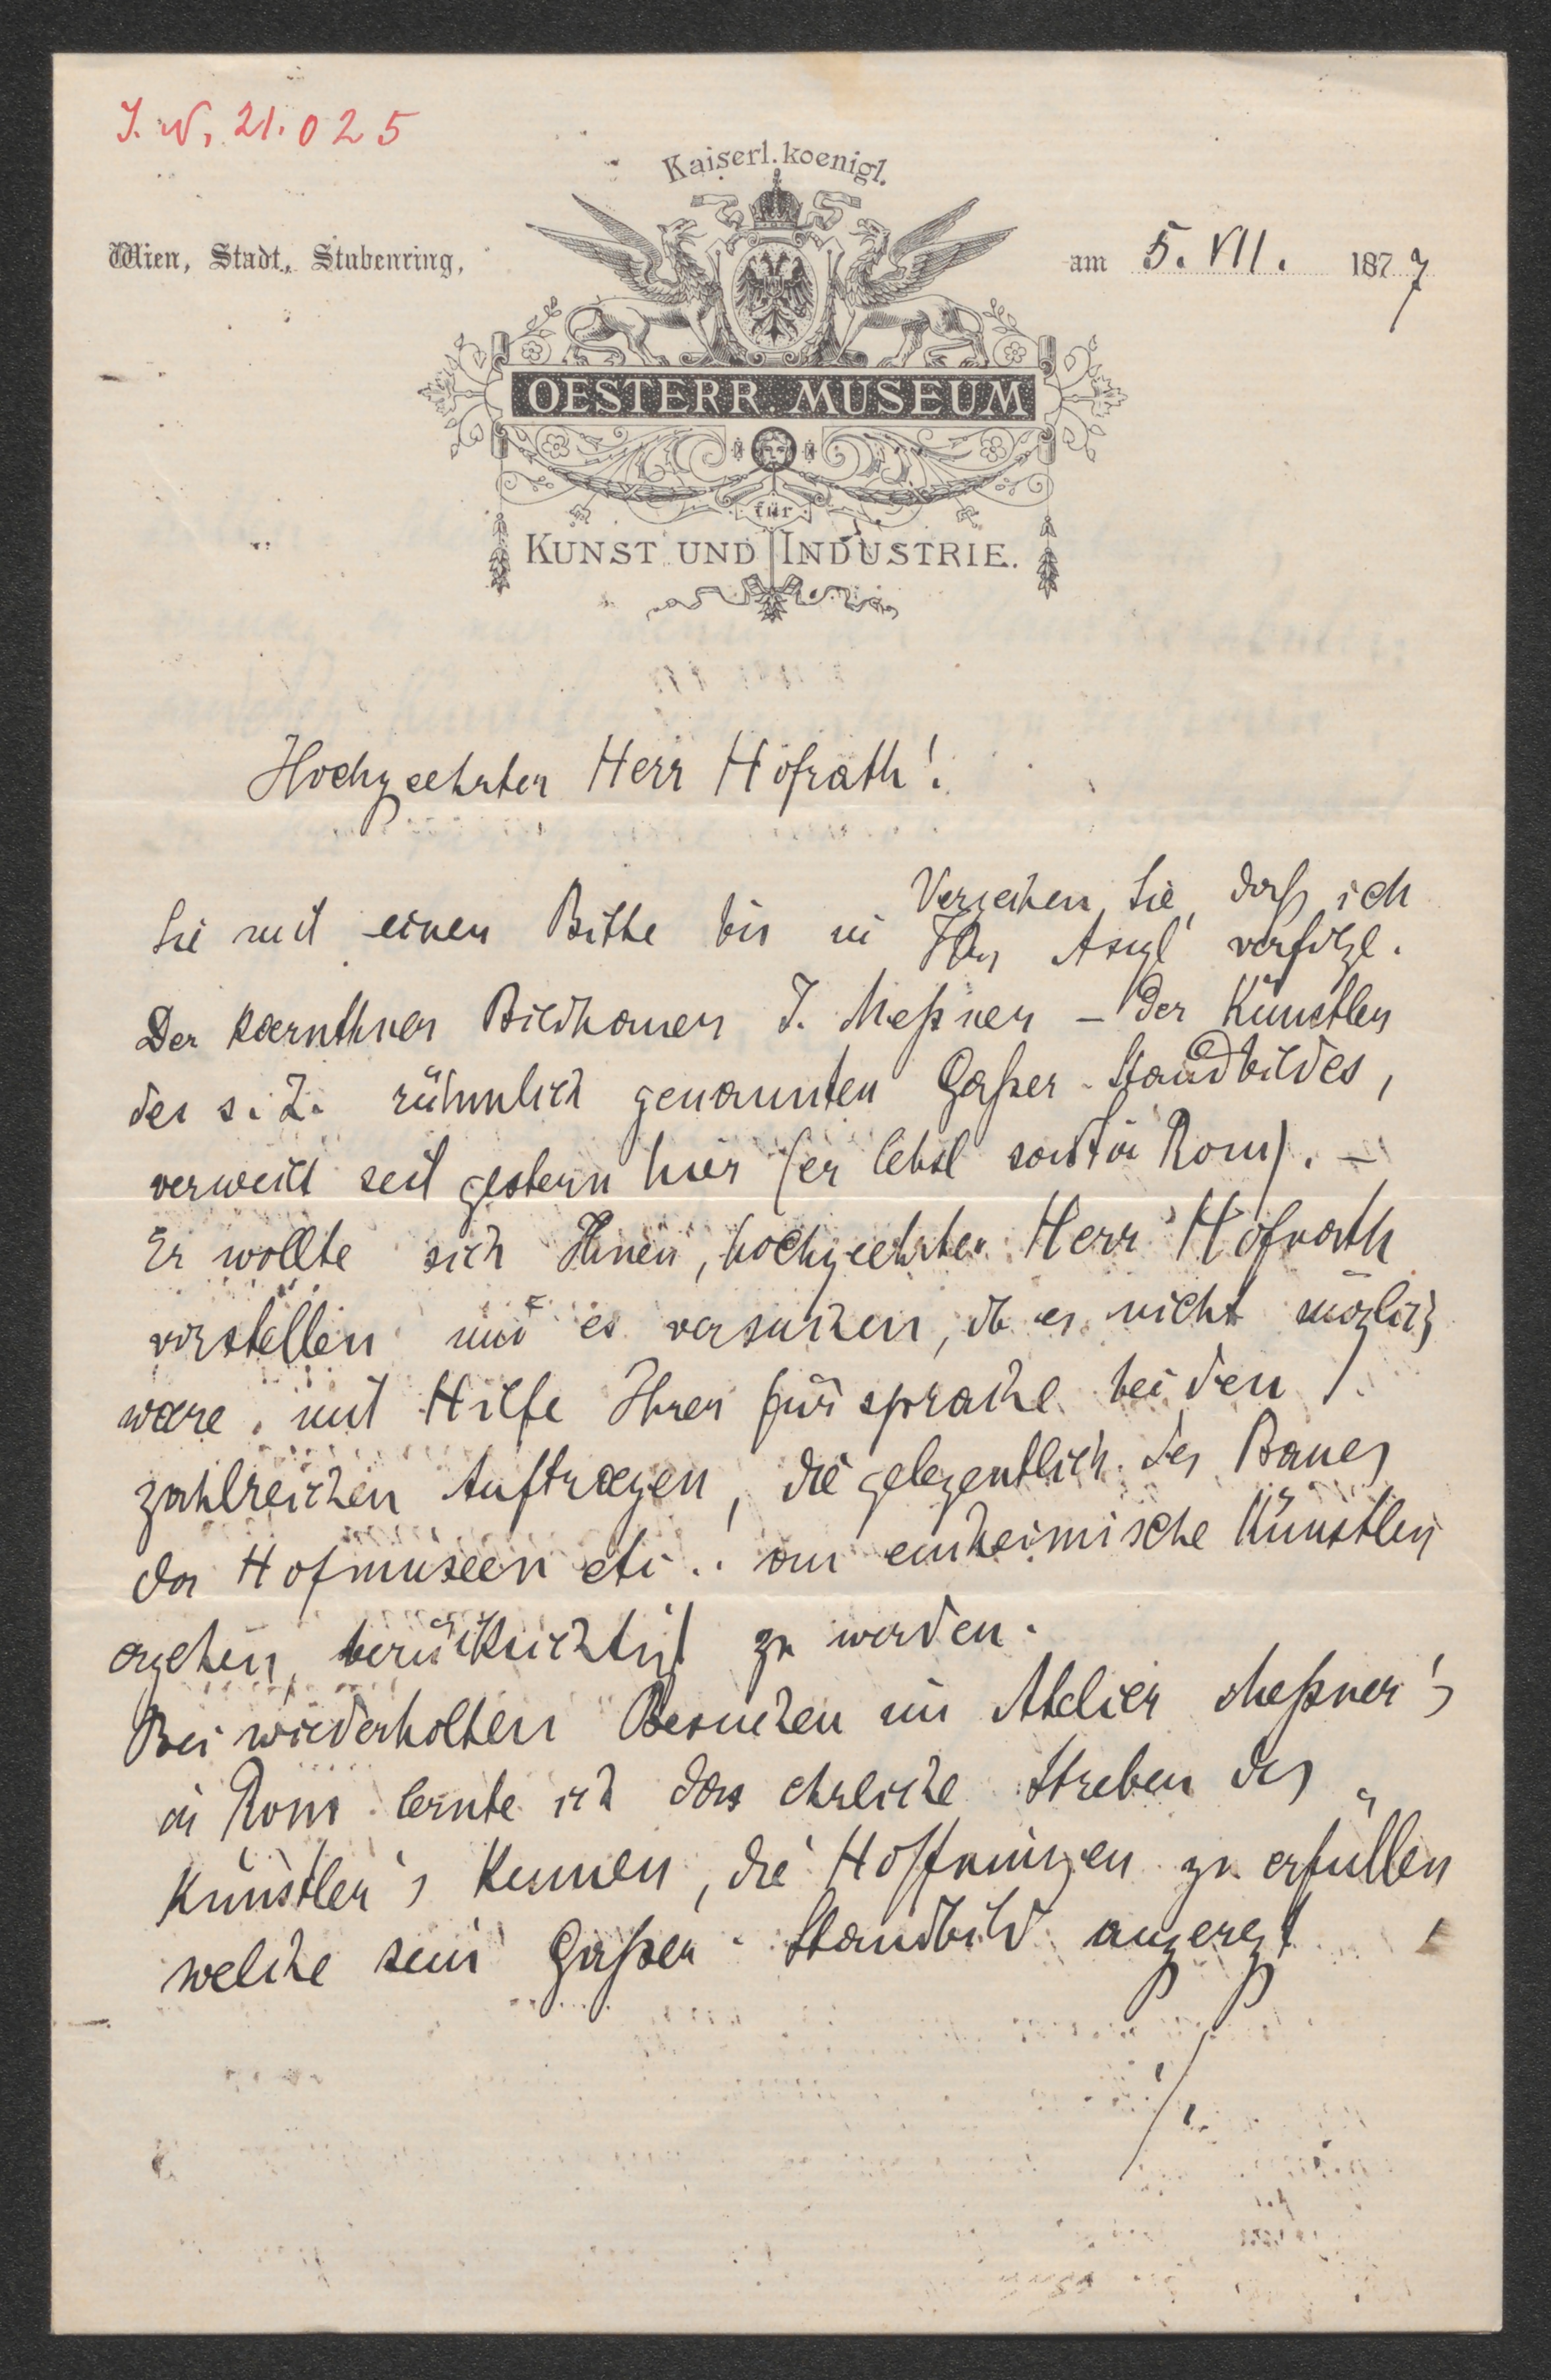 I. N. 21.025
Kaiserl. koenigl.
Wien, Stadt, Stubenring,
am 5. VII. 1877
OESTERR. MUSEUM
für
KUNST UND INDUSTRIE.
Hochgeehrter Herr Hofrath!
Verzeihen Sie, daß ich
Sie mit einer Bitte bis in Ihr Asyl verfolge.
Der kaernthner Bildhauer J. Meßner – der Künstler
des s. Z. rühmlich genannten Gaßer-Standbildes,
verweilt seit gestern hier (er lebt sonst in Rom). –
Er wollte sich Ihnen, hochgeehrter Herr Hofrath
vorstellen und es versuchen, ob es nicht möglich
waere, mit Hilfe Ihrer Fürsprache bei den
zahlreichen Auftraegen, die gelegentlich des Baues
der Hofmuseen etc.. an einheimische Künstler
ergehen, berücksichtigt zu werden.
Bei wiederholten Besuchen im Atelier Meßner's
in Rom lernte ich das ehrliche Streben des
Künstler's kennen, die Hoffnungen zu erfüllen
welche sein Gaßer-Standbild angeregt
./.